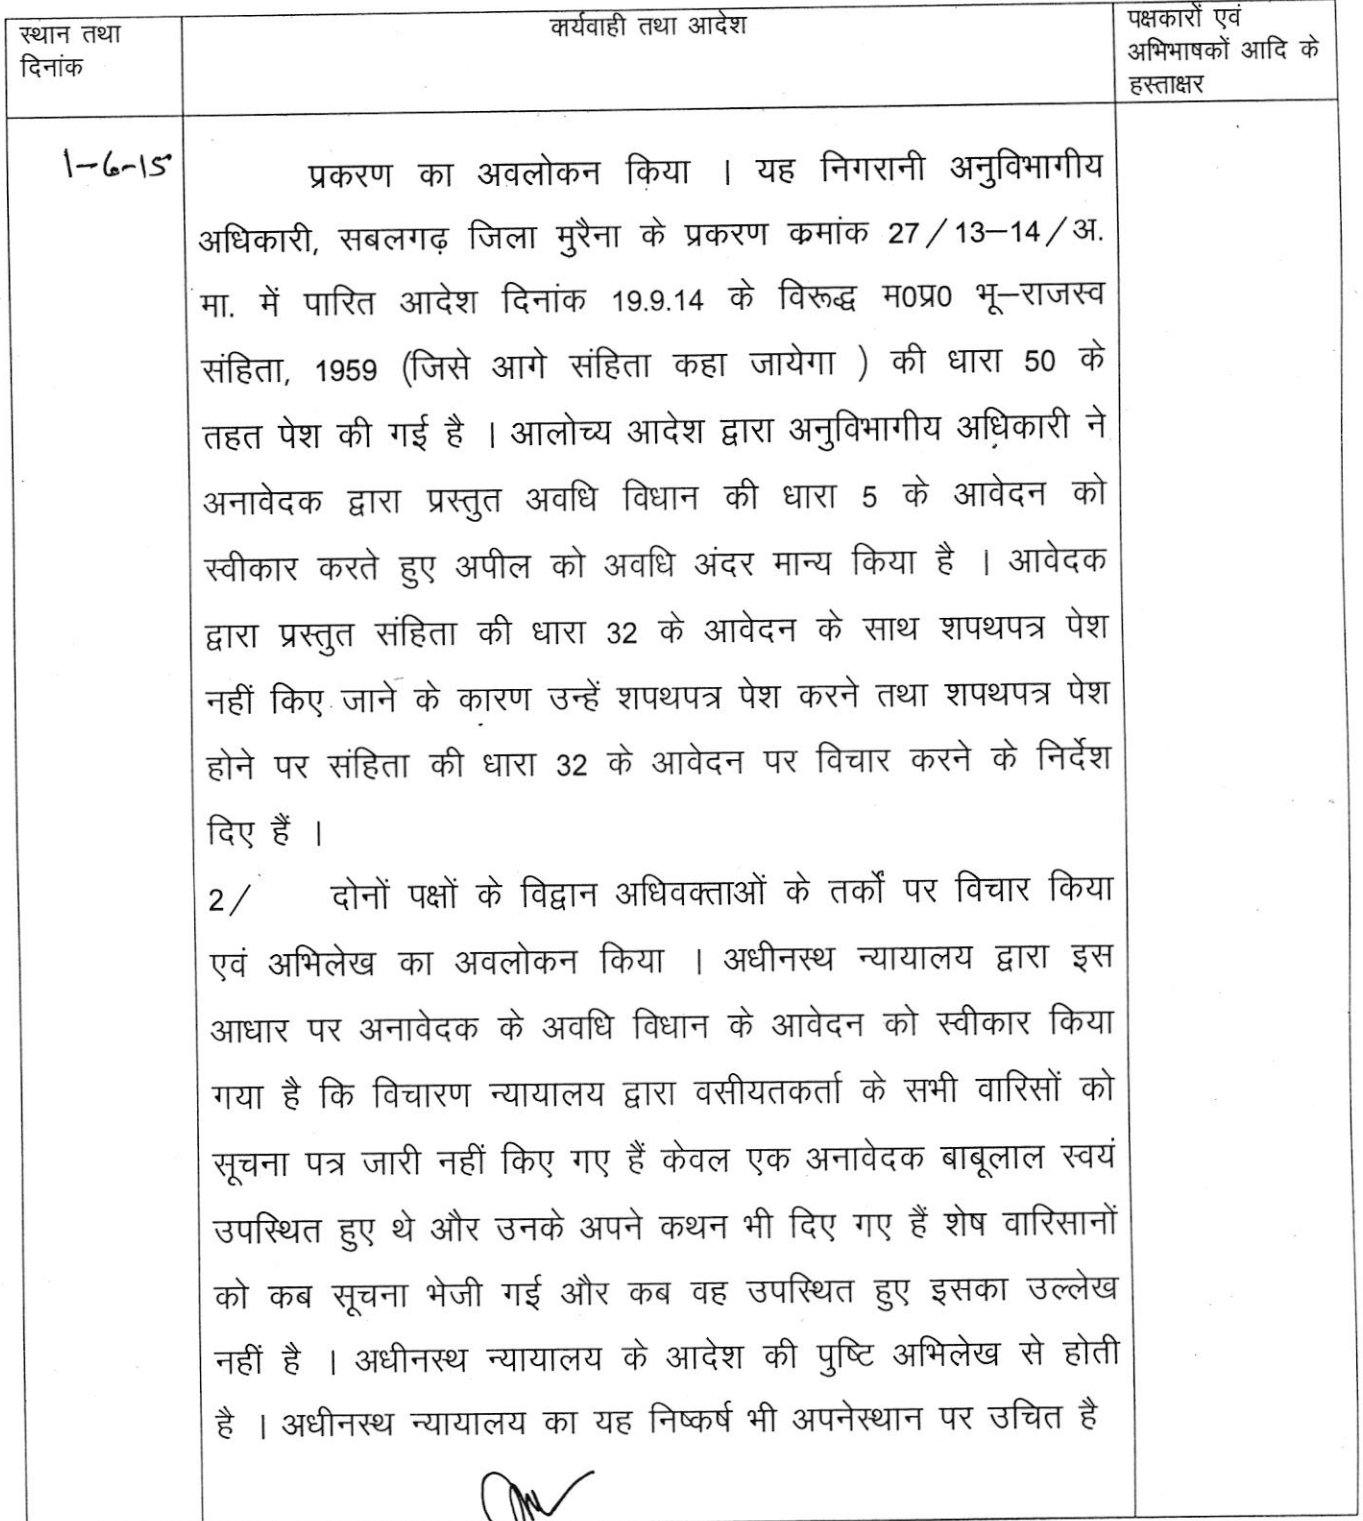 स्थान तथा
दिनांक
कार्यवाही तथा आदेश
पक्षकारों एवं
अभिभाषकों आदि के
हस्ताक्षर
1-6-15
प्रकरण का अवलोकन किया । यह निगरानी अनुविभागीय
अधिकारी, सबलगढ़ जिला मुरैना के प्रकरण कमांक 27/13–14/अ.
मा. में पारित आदेश दिनांक 19.9.14 के विरूद्ध म0प्र0 भू–राजस्व
संहिता, 1959 (जिसे आगे संहिता कहा जायेगा ) की धारा 50 के
तहत पेश की गई है । आलोच्य आदेश द्वारा अनुविभागीय अधिकारी ने
अनावेदक द्वारा प्रस्तुत अवधि विधान की धारा 5 के आवेदन को
स्वीकार करते हुए अपील को अवधि अंदर मान्य किया है । आवेदक
द्वारा प्रस्तुत संहिता की धारा 32 के आवेदन के साथ शपथपत्र पेश
नहीं किए जाने के कारण उन्हें शपथपत्र पेश करने तथा शपथपत्र पेश
होने पर संहिता की धारा 32 के आवेदन पर विचार करने के निर्देश
दिए हैं ।
2/ दोनों पक्षों के विद्वान अधिवक्ताओं के तर्कों पर विचार किया
एवं अभिलेख का अवलोकन किया । अधीनस्थ न्यायालय द्वारा इस
आधार पर अनावेदक के अवधि विधान के आवेदन को स्वीकार किया
गया है कि विचारण न्यायालय द्वारा वसीयतकर्ता के सभी वारिसों को
सूचना पत्र जारी नहीं किए गए हैं केवल एक अनावेदक बाबूलाल स्वयं
उपस्थित हुए थे और उनके अपने कथन भी दिए गए हैं शेष वारिसानों
को कब सूचना भेजी गई और कब वह उपस्थित हुए इसका उल्लेख
नहीं है । अधीनस्थ न्यायालय के आदेश की पुष्टि अभिलेख से होती
है । अधीनस्थ न्यायालय का यह निष्कर्ष भी अपनेस्थान पर उचित है